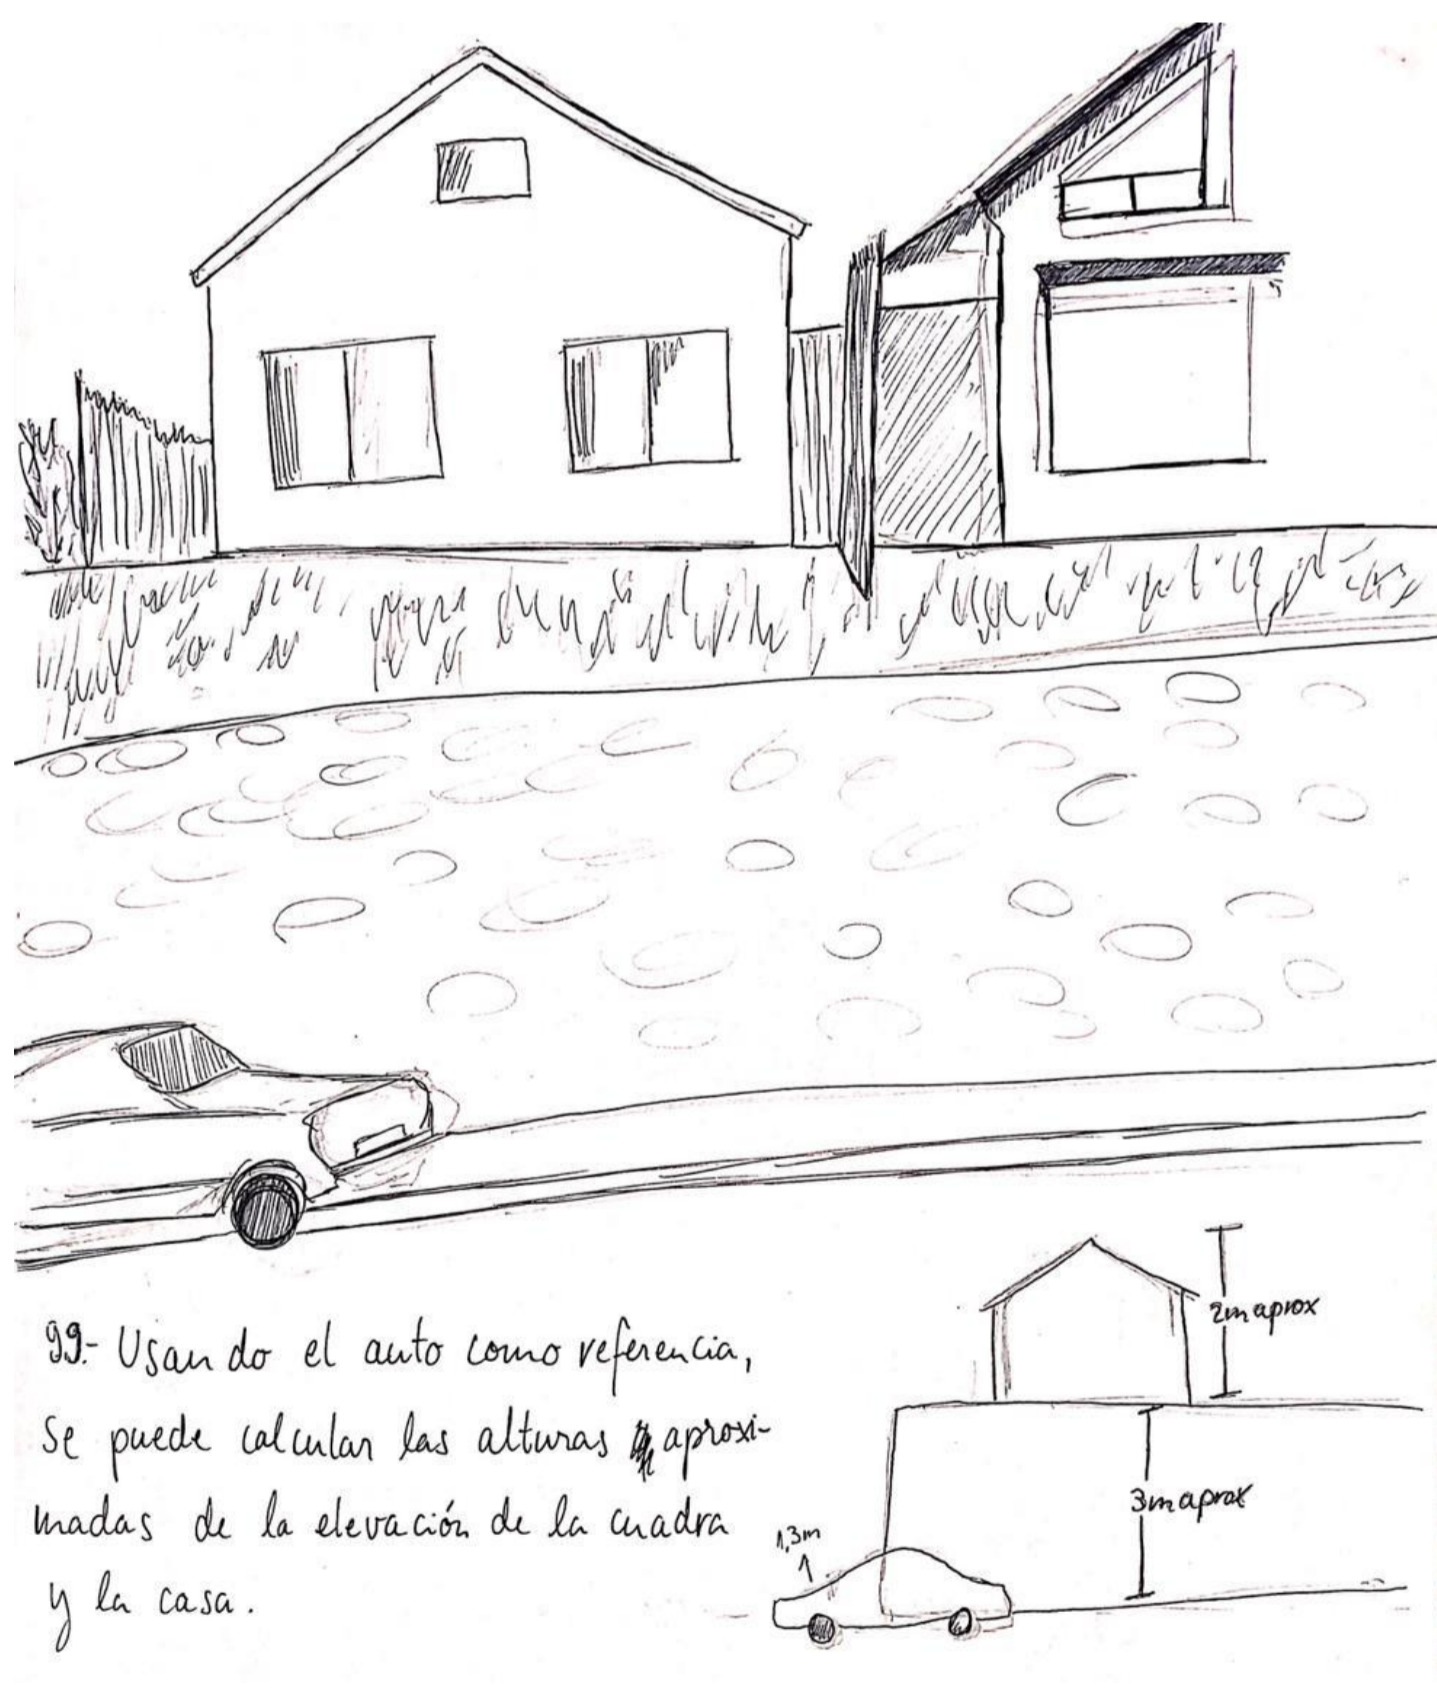 99.- Usando el auto como referencia,
se puede calcular las alturas aproxi-
madas de la elevación de la cuadra
y la casa.
2m aprox
3m aprox
1,3m